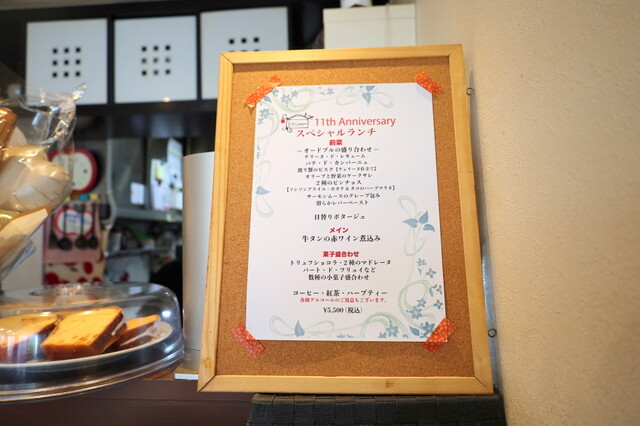 11th Anniversary
スペシャルランチ
前菜
～オードブルの盛り合わせ～
テリーヌ・ド・レギューム
パテ・ド・カンパーニュ
渡り蟹のビスク【ヴェリーヌ仕立て】
オリーブと野菜のケークサレ
2種のピンチョス
サーモンムースのクレープ包み
滑らかレバーペースト
日替りポタージュ
メイン
牛タンの赤ワイン煮込み
菓子盛合わせ
トリュフショコラ・2種のマドレーヌ
パート・ド・フリュイなど
数種の小菓子盛合わせ
コーヒー・紅茶・ハーブティー
各種アルコールのご用意もございます。
¥5,500（税込）